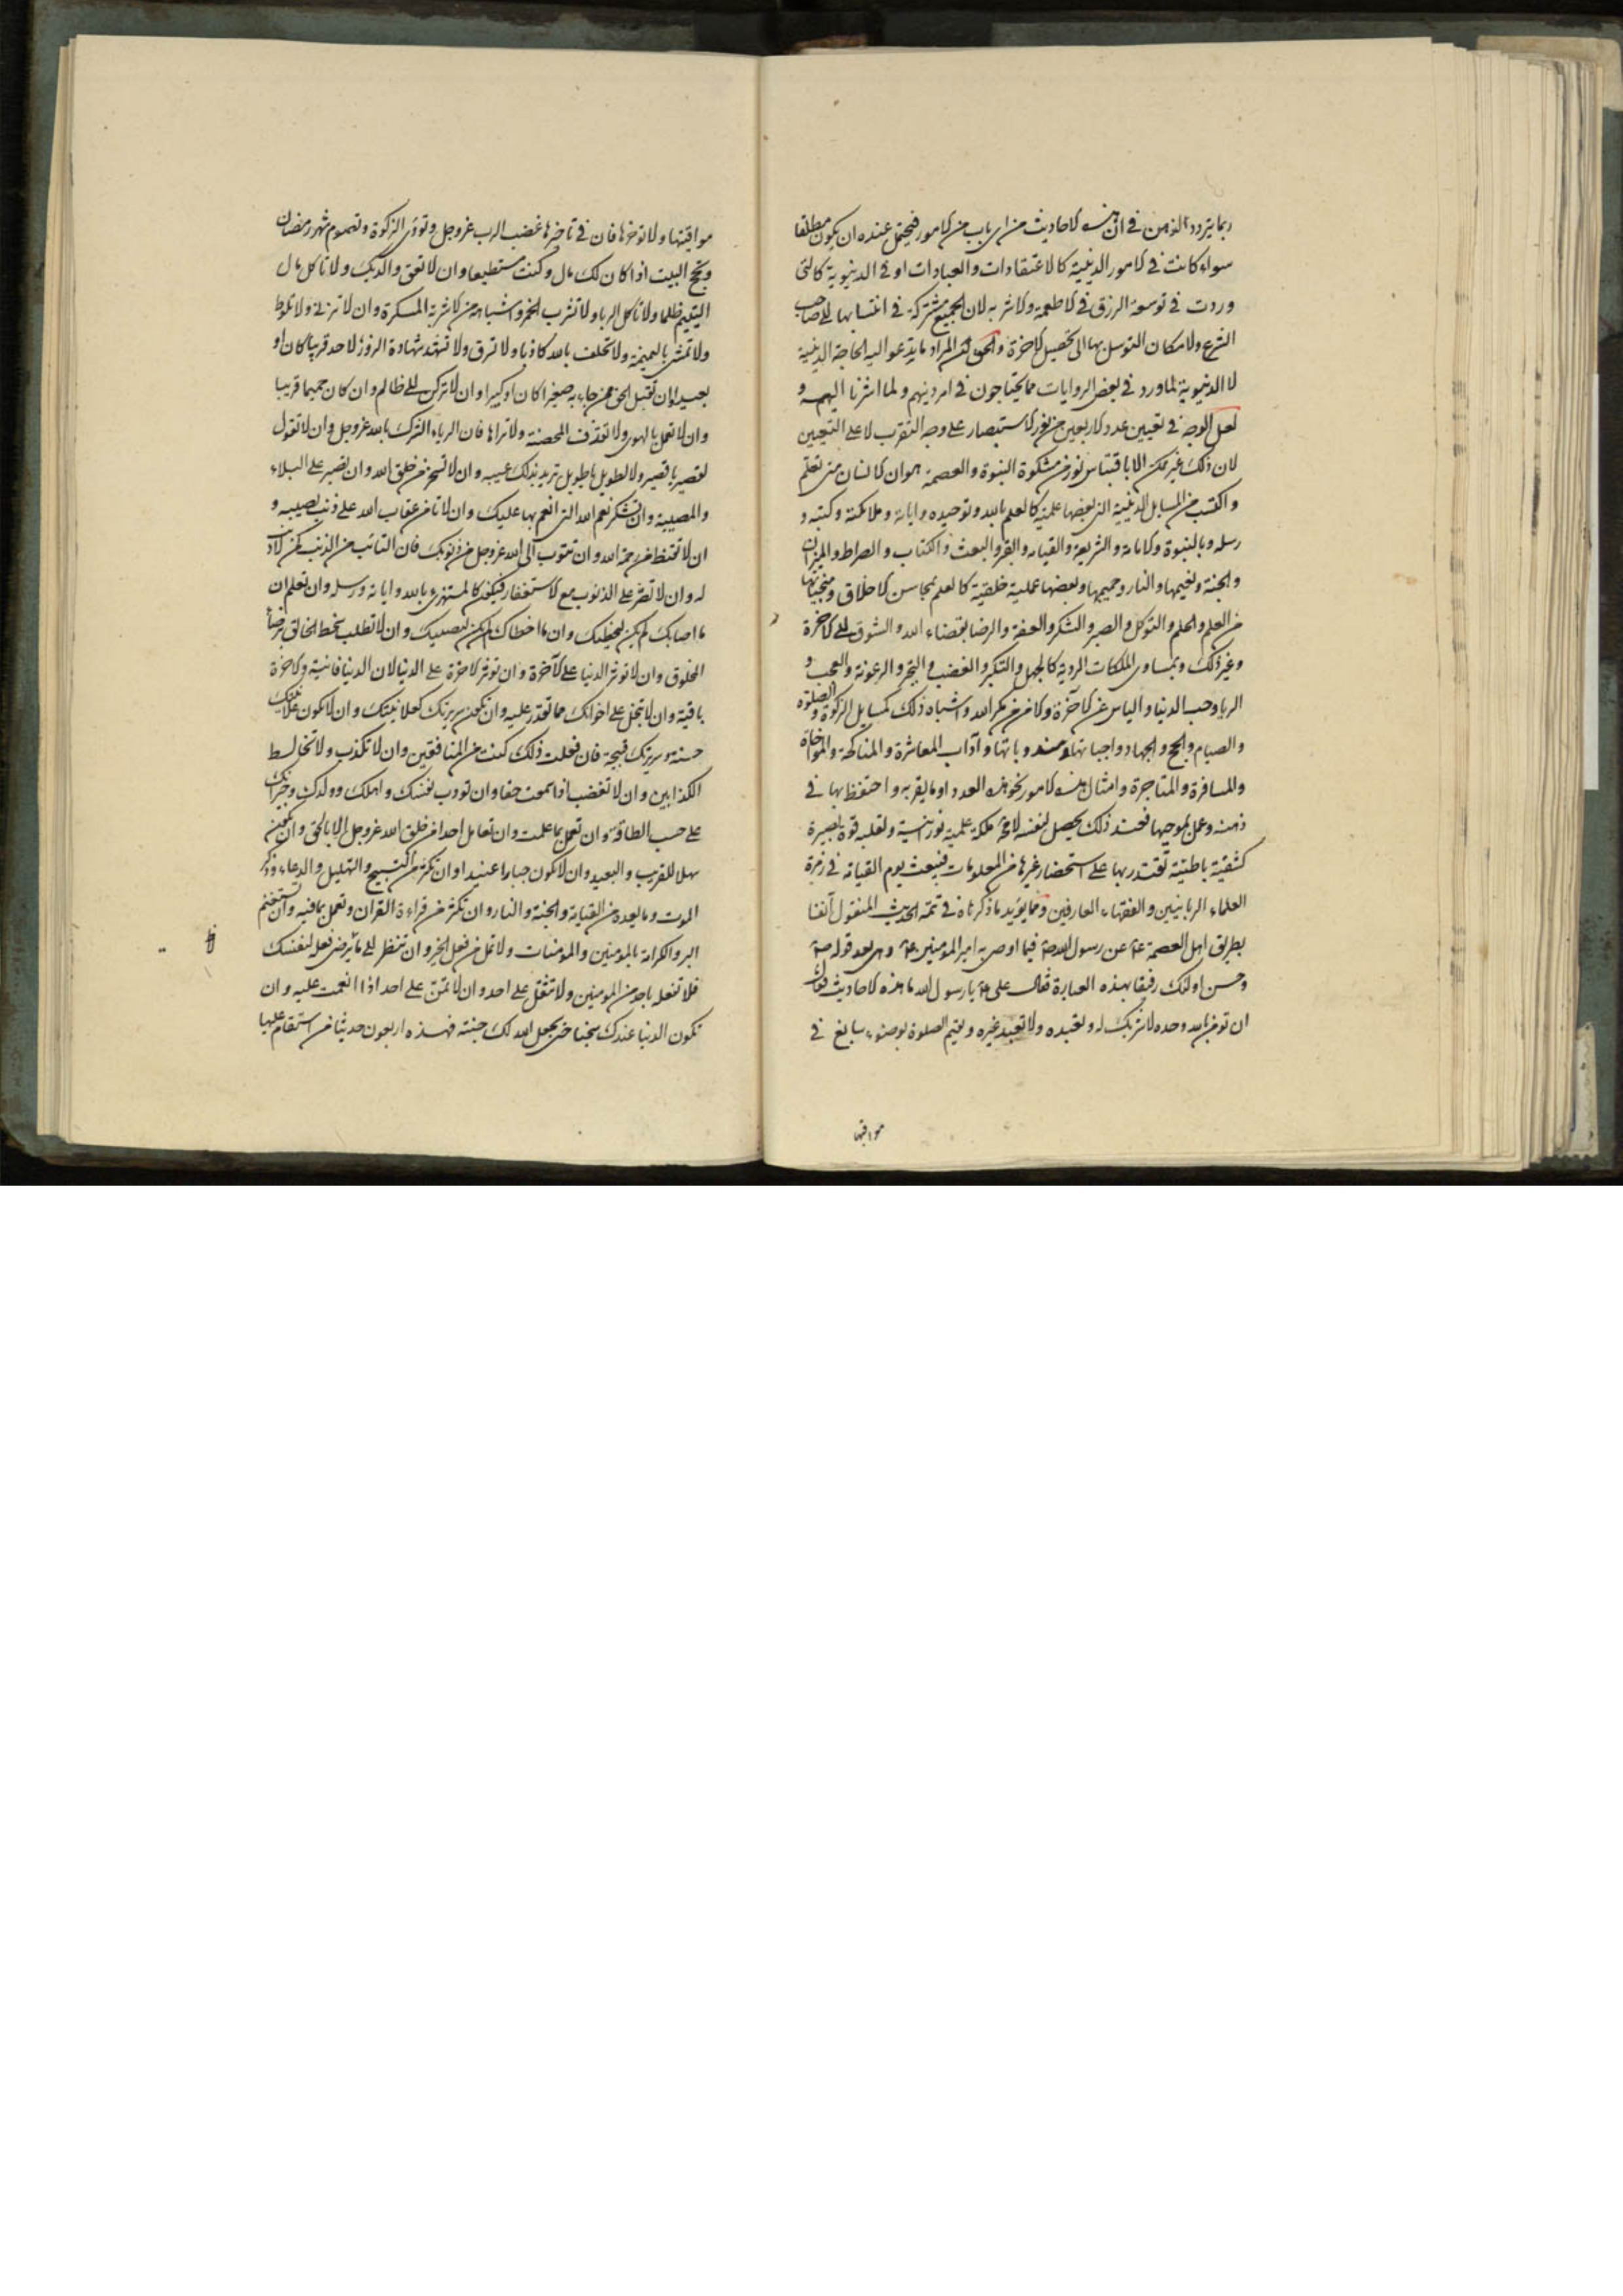 ربما يتردد الذهن في ان هذه الاحاديث من اي باب من الامور فيحتمل عنده ان يكون مطلقا
سواء كانت في الامور الدينية كالاعتقادات والعبادات او في الدنيوية كالتي
وردت في توسعة الرزق في الاطعمة والاشربه لان الجميع مشتركة في انتسابها الى صاحب
الشرع ولامكان التوسل بها الى تحصيل الاخرة والحق ان المراد ما يدعو اليه الحاجة الدينية
لا الدنيوية لما ورد في بعض الروايات مما يحتاجون في امر دينهم ولما اشرنا اليه و
لعل الوجه في تعيين عدد الاربعين من نور الاستبصار على وجه التقرب لا على التعيين
لان ذلك غير ممكن الا باقتباس نور من مشكوة النبوة والعصمة هو ان الانسان متى تعلم
واكتسب من المسايل الدينية التي بعضها علمية كالعلم بالله وتوحيده واياته وملائكته وكتبه و
رسله وبالنبوة والامامة والشريعة والقيامه والقبر والبعث والكتاب والصراط والميزان
والجنة ونعيمها والنار وجحيمها وبعضها عملية خلقية كالعلم بمحاسن الاخلاق ومنجياتها
من العلم والحلم والتوكل والصبر والشكر والعفة والرضا بقضاء الله والشوق الى الاخرة
وغير ذلك وبمساوى الملكات الردية كالجهل والتكبر والغضب والبخر والرعونة والعجب و
الريا وحب الدنيا والياس عن الآخرة والامن من مكر الله واشباه ذلك كمسايل الزكوة والصلوة
والصيام والحج والجهاد واجباتها ومندوباتها وآداب المعاشرة والمناكحة والمواخاة
والمسافرة والمتاجرة وامثال هذه الامور نحو هذه العدد او ما يقربه واحتفظ بها في
ذهنه وعمل بموجبها فعند ذلك يحصل لنفسه لا محة ملكة علمية نورانية ولقلبه قوة بصيرة
كشفية باطنية تقتدر بها على استحضار غيرها من المعلومات فيبعث يوم القيامة في زمرة
العلماء الربانيين والفقهاء العارفين ومما يؤيد ما ذكرناه في تتمة الحديث المنقول آنفا
بطريق اهل العصمة ع عن رسول الله ص فيما اوصى به امير المؤمنين ع وهى بعد قوله ص
وحسن اولئك رفيقا بهذه العبارة فقال على ع يا رسول الله ما هذه الاحاديث فقال
ان تؤمن بالله وحده لا شريك له وتعبده ولا تعبد غيره وتقيم الصلوة بوضوء سابغ في
مواقيتها
مواقيتها ولا توخرها فان في تاخيرها غضب الرب عز وجل وتودى الزكوة وتصوم شهر رمضان
وتحج البيت اذا كان لك مال وكنت مستطيعا وان لا تعق والديك ولا تاكل مال
اليتيم ظلما ولا تاكل الربا ولا تشرب الخمر واشباهه من الاشربة المسكرة وان لا تزني ولا تلوط
ولا تمشى بالنميمة ولا تحلف بالله كاذبا ولا تسرق ولا تشهد شهادة الزور لاحد قريبا كان او
بعيدا وان تقبل الحق ممن جاء به صغيرا كان او كبيرا وان لا تركن الى ظالم وان كان حميما قريبا
وان لا تعمل بالهوى ولا تقذف المحصنة ولا تراها فان الرياء الشرك بالله عز وجل وان لا تقول
لقصير يا قصير ولا لطويل يا طويل تريد بذلك عيبه وان لا تسخر من خلق الله وان تصبر على البلاء
والمصيبة وان تشكر نعم الله التي انعم بها عليك وان لا تامن عقاب الله على ذنب تصيبه و
ان لا تقنط من رحمة الله وان تتوب الى الله عز وجل من ذنوبك فان التائب من الذنب كمن لا ذنب
له وان لا تصر على الذنوب مع الاستغفار فيكون كالمستهزئ بالله واياته ورسله وان تعلم ان
ما اصابك لم يكن ليخطيك وان ما اخطاك لم يكن ليصيبك وان لا تطلب سخط الخالق برضا
المخلوق وان لا تؤثر الدنيا على الآخرة وان تؤثر الاخرة على الدنيا لان الدنيا فانية والاخرة
باقية وان لا تبخل على اخوانك مما تقدر عليه وان تكون سريرتك كعلانيتك وان لا تكون علانيتك
حسنة وسريرتك قبيحة فان فعلت ذلك كنت من المنافقين وان لا تكذب ولا تخالط
الكذابين وان لا تغضب اذا سمعت حقا وان تودب نفسك واهلك وولدك وجيرانك
على حسب الطاقة وان تعمل بما علمت وان تعامل احدا من خلق الله عز وجل الا بالحق وان تكون
سهلا للقريب والبعيد وان لا تكون جبارا عنيدا وان تكثر من التسبيح والتهليل والدعاء وذكر
الموت وما بعده من القيامة والجنة والنار وان تكثر من قراءة القران وتعمل بما فيه وان تستغنم
البر والكرامة بالمومنين والمومنات ولا تمل من فعل الخير وان تنظر الى ما ترضى فعله لنفسك
فلا تفعله باحد من المومنين ولا تثقل على احد وان لا تمن على احد اذا انعمت عليه وان
تكون الدنيا عندك سجنا حتى يجعل الله لك جنته فهذه اربعون حديثا من استقام عليها